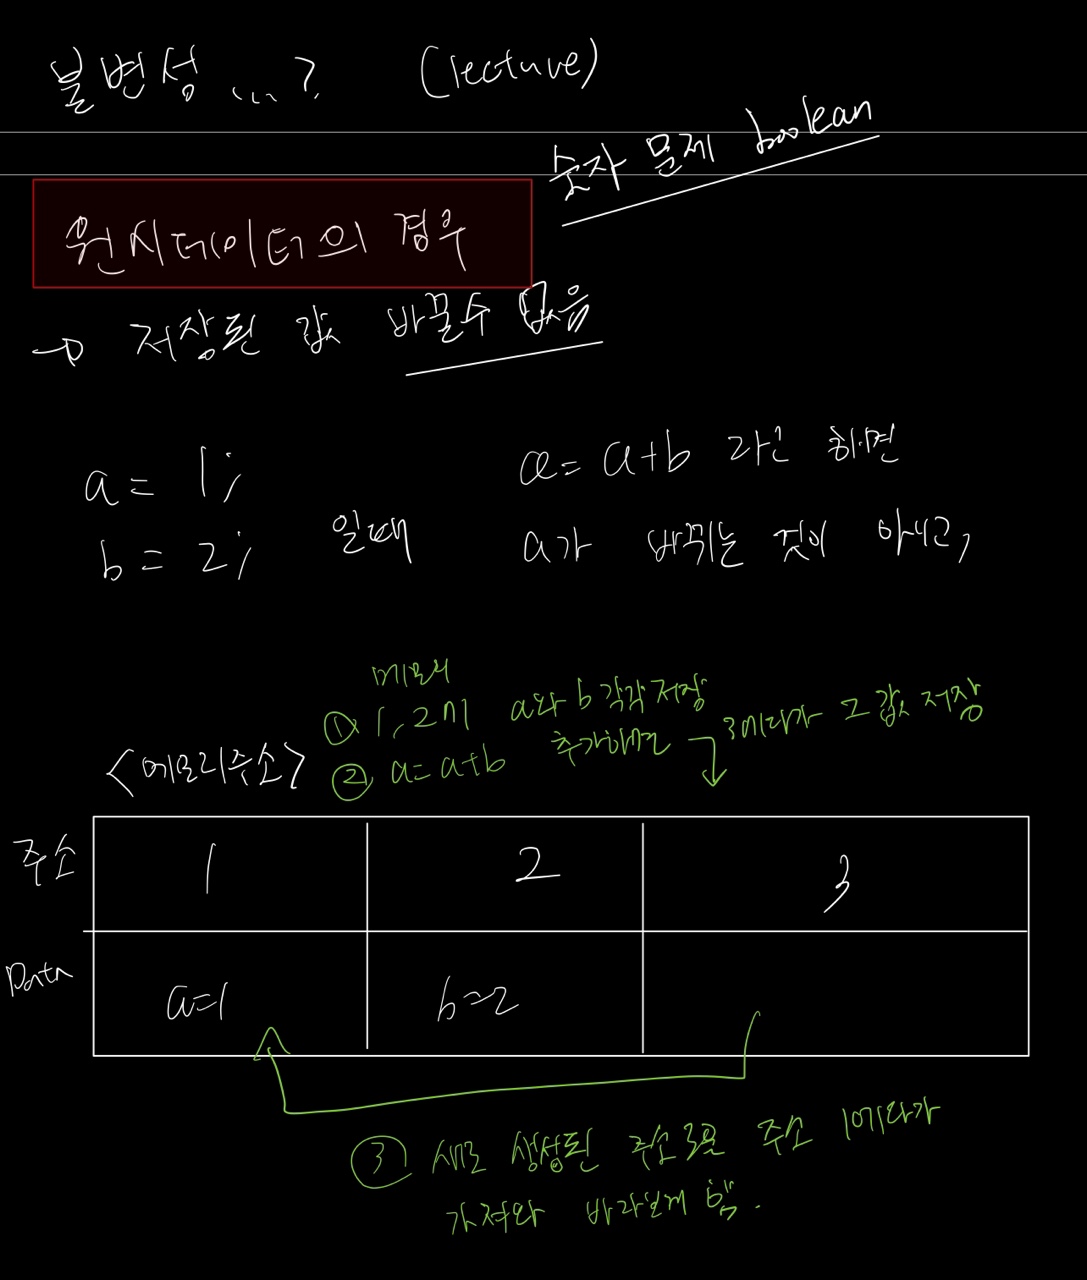 불변성 ...? (lecture)
숫자 문제 boolean
원시데이터의 경우
→ 저장된 값 바꿀수 없음
a = 1;
b = 2; 일때
a = a+b 라고 하면
a가 바뀌는 것이 아니고,
메모리
① 1, 2에 a와 b 각각 저장
② a = a+b 추가하면 3에다가 그 값 저장
<메모리주소>
주소 1 2 3
Data a=1 b=2
③ 새로 생성된 주소 3을 주소 1에다가
가져와 바라보게 함.